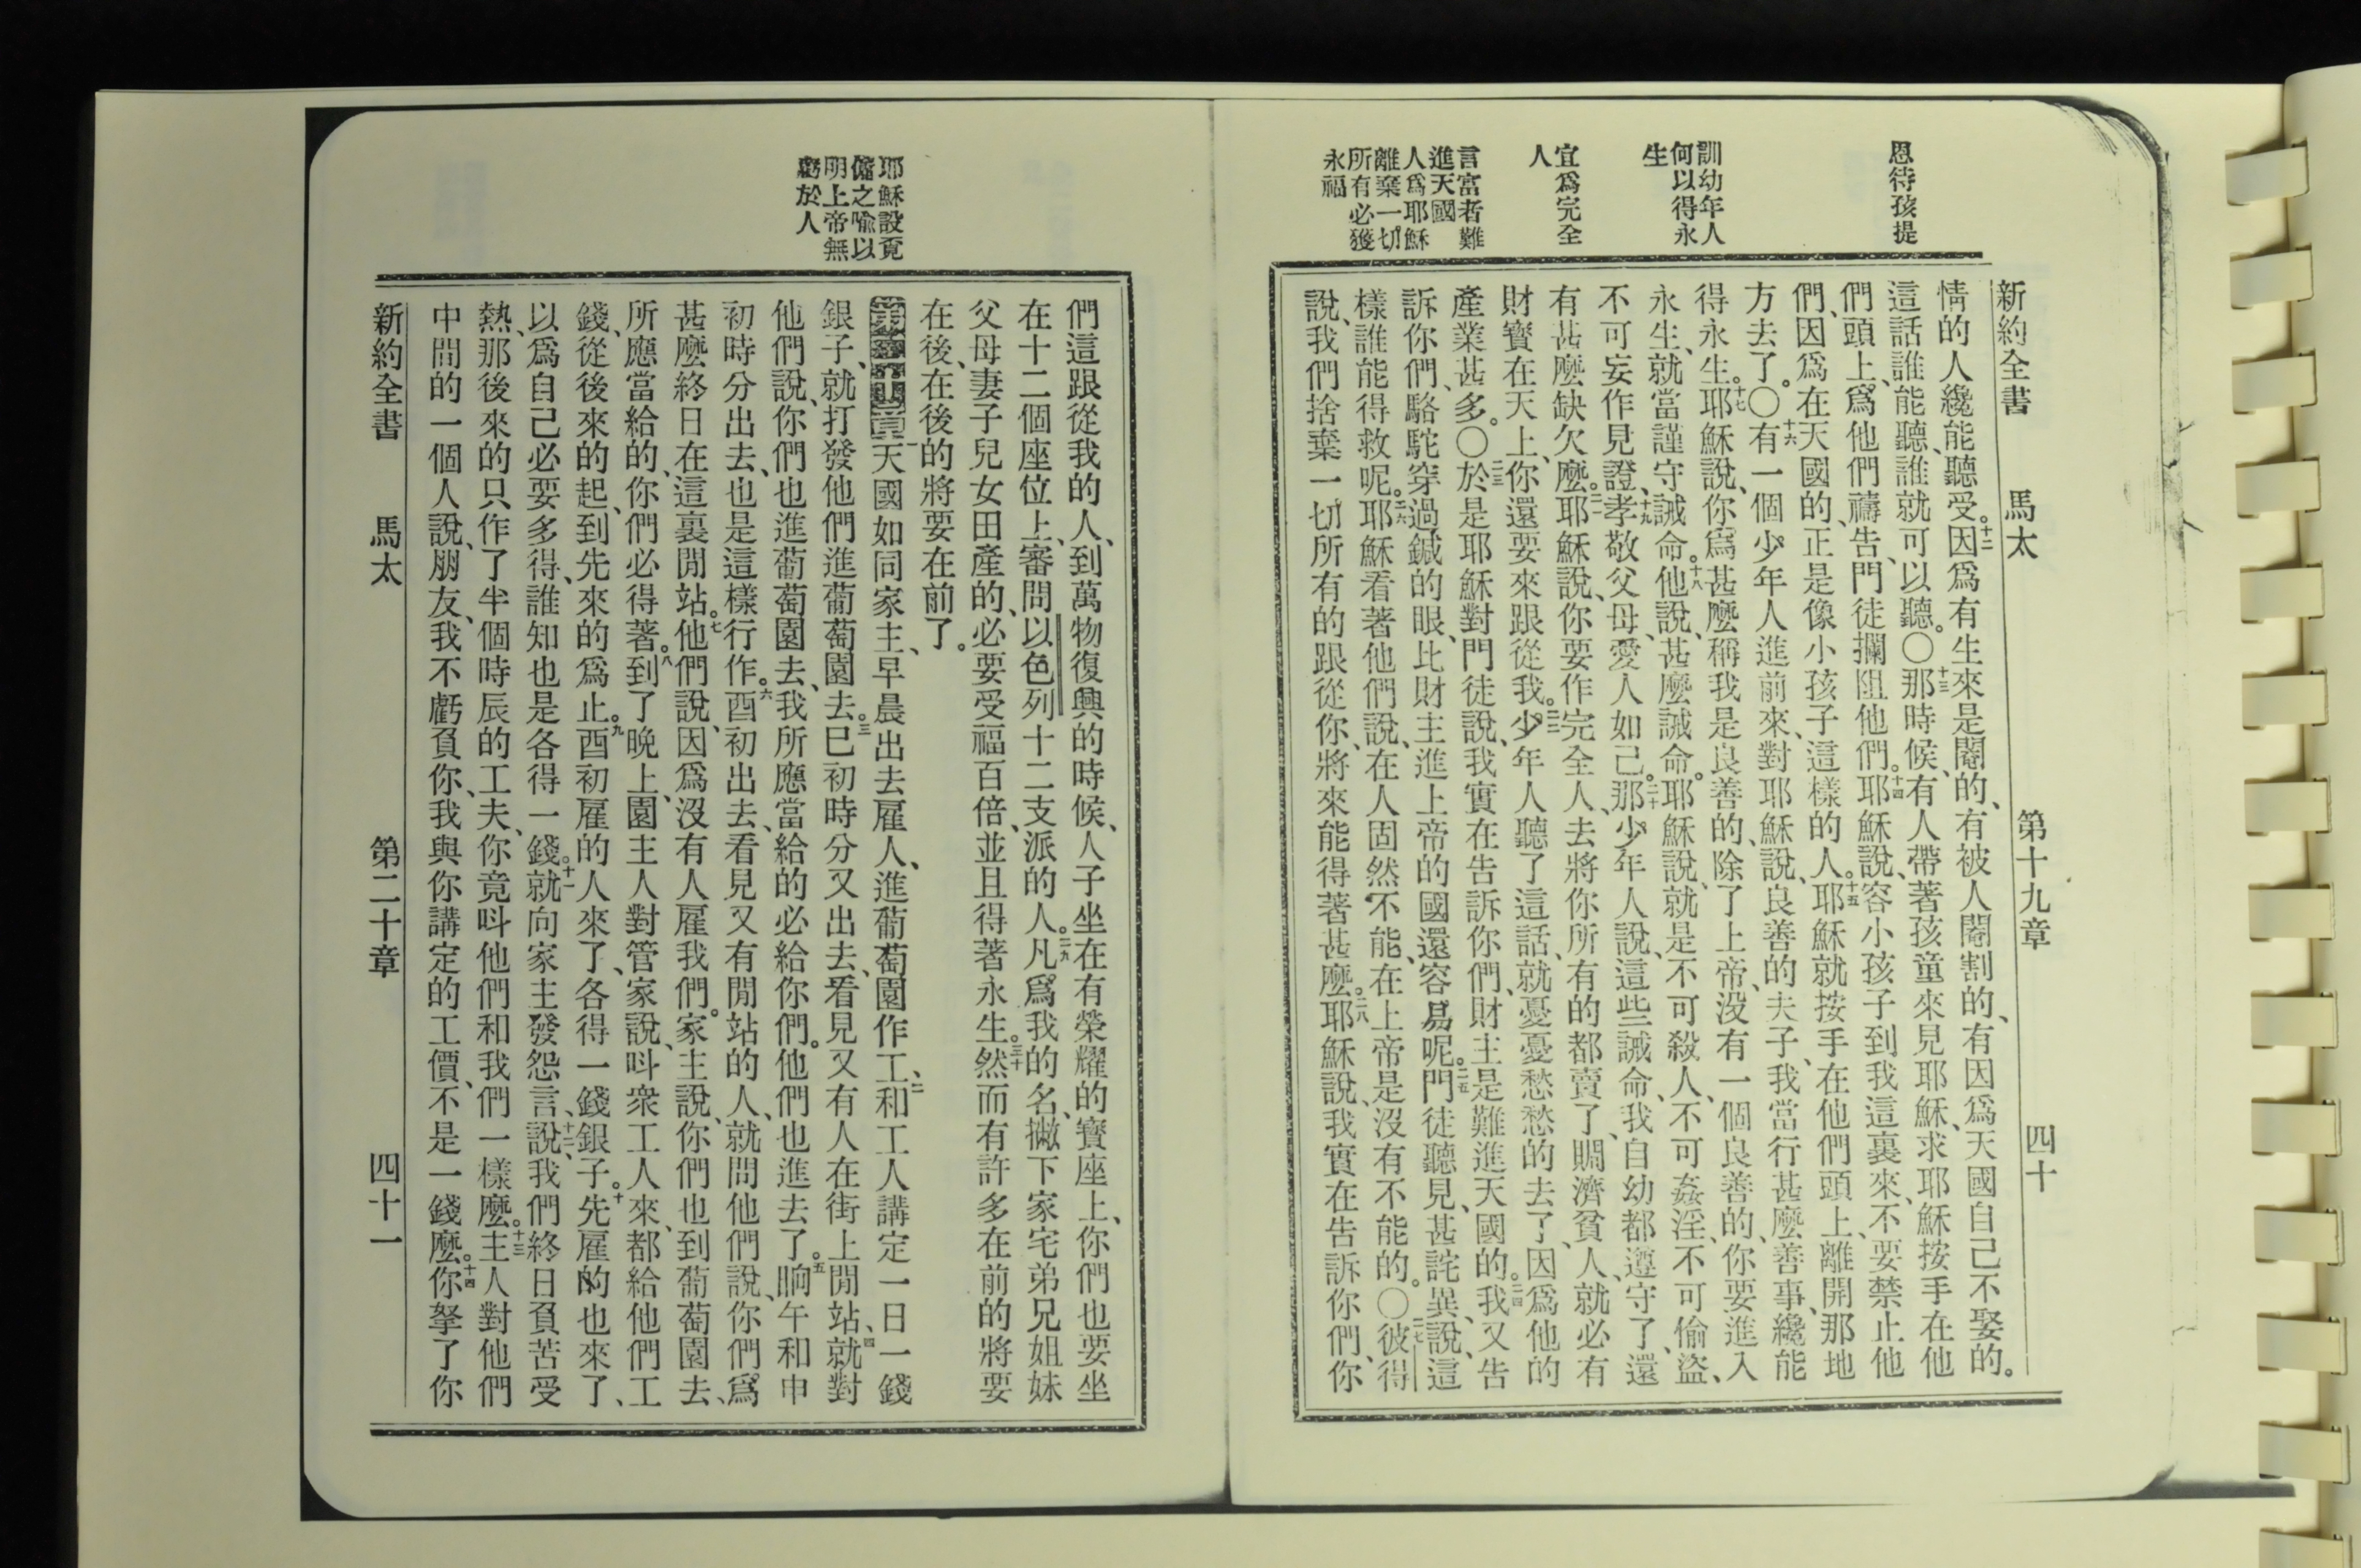 恩待孩提
訓幼年人
何以得永
生
宜爲完全
人
言富者難
進天國
人爲耶穌
離棄一切
所有必獲
永福
新約全書 馬太 第十九章 四十
情的人纔能聽受。十二因爲有生來是閹的、有被人閹割的、有因爲天國自己不娶的。
這話誰能聽、誰就可以聽。〇十三那時候、有人帶著孩童來見耶穌、求耶穌按手在他
們頭上、爲他們禱告、門徒攔阻他們。十四耶穌說、容小孩子到我這裏來、不要禁止他
們、因爲在天國的、正是像小孩子這樣的人。十五耶穌就按手在他們頭上、離開那地
方去了。〇十六有一個少年人進前來、對耶穌說、良善的夫子、我當行甚麼善事、纔能
得永生。十七耶穌說、你爲甚麼稱我是良善的、除了上帝、沒有一個良善的、你要進入
永生、就當謹守誡命。十八他說、甚麼誡命。耶穌說、就是不可殺人、不可姦淫、不可偷盜、
不可妄作見證、十九孝敬父母、愛人如己。二十那少年人說、這些誡命、我自幼都遵守了、還
有甚麼缺欠麼。二一耶穌說、你要作完全人、去將你所有的都賣了、賙濟貧人、就必有
財寶在天上、你還要來跟從我。二二少年人聽了這話、就憂憂愁愁的去了、因爲他的
產業甚多。〇二三於是耶穌對門徒說、我實在告訴你們、財主是難進天國的。二四我又告
訴你們、駱駝穿過鍼的眼、比財主進上帝的國還容易呢。二五門徒聽見、甚詫異、說、這
樣誰能得救呢。二六耶穌看著他們說、在人固然不能、在上帝是沒有不能的。〇二七彼得
說、我們捨棄一切所有的跟從你、將來能得著甚麼。二八耶穌說、我實在告訴你們、你
耶穌設覔
傭之喻以
明上帝無
虧於人
們這跟從我的人、到萬物復興的時候、人子坐在有榮耀的寶座上、你們也要坐
在十二個座位上、審問以色列十二支派的人。二九凡爲我的名、撇下家宅弟兄姐妹
父母、妻子兒女田產的、必要受福百倍、並且得著永生。三十然而有許多在前的將要
在後、在後的將要在前了。
第二十章一天國如同家主、早晨出去雇人、進葡萄園作工、二和工人講定一日一錢
銀子、就打發他們進葡萄園去。三巳初時分又出去、看見又有人在街上閒站、四就對
他們說、你們也進葡萄園去、我所應當給的必給你們。他們也進去了。五晌午和申
初時分出去、也是這樣行作。六酉初出去、看見又有閒站的人、就問他們說、你們爲
甚麼終日在這裏閒站。七他們說、因爲沒有人雇我們。家主說、你們也到葡萄園去、
所應當給的、你們必得著。八到了晚上、園主人對管家說、呌衆工人來、都給他們工
錢、從後來的起、到先來的爲止。九酉初雇的人來了、各得一錢銀子。十先雇的也來了、
以爲自己必要多得、誰知也是各得一錢。十一就向家主發怨言、十二說、我們終日負苦受
熱、那後來的只作了半個時辰的工夫、你竟呌他們和我們一樣麼。十三主人對他們
中間的一個人說、朋友、我不虧負你、我與你講定的工價、不是一錢麼。十四你拏了你
新約全書 馬太 第二十章 四十一